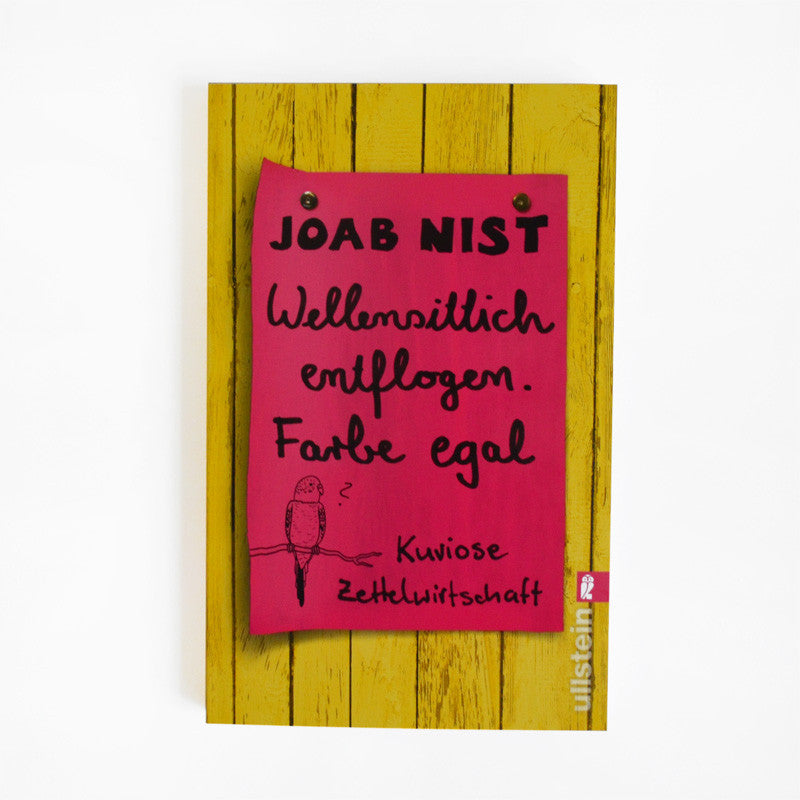 JOAB NIST
Wellensittich
entflogen.
Farbe egal
?
Kuriose
Zettelwirtschaft
ullstein